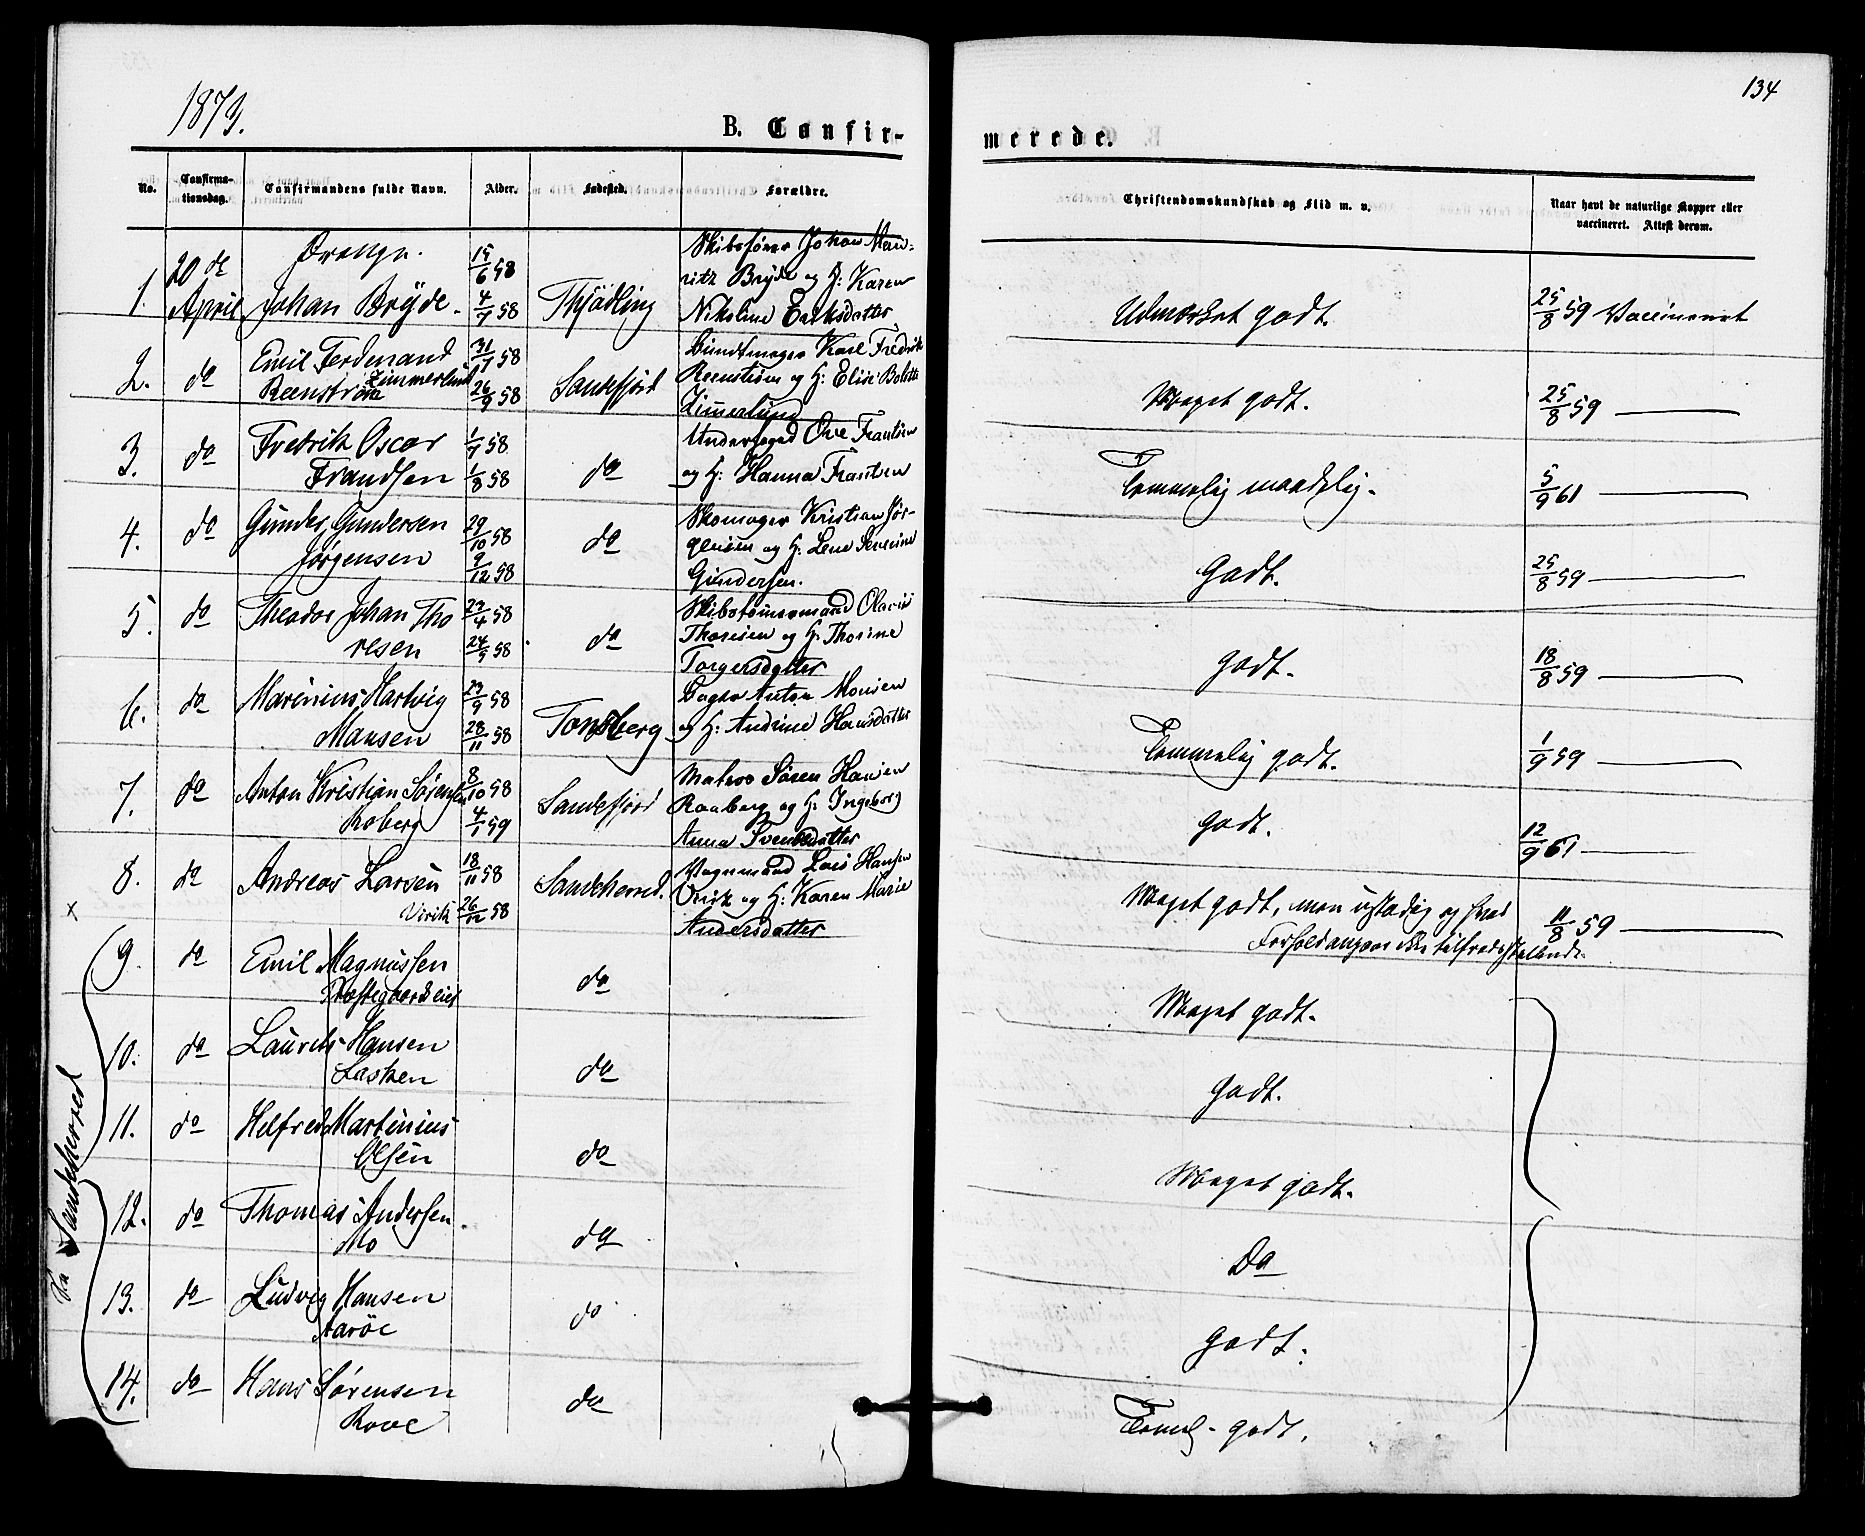 1873.
134
B. Confir-
merede.
No.
Confirma-
tionsdag.
Confirmandens fulde Navn.
Alder.
Fødested.
Forældre.
Christendomskundskab og Flid m. v.
Naar havt de naturlige Kopper eller
vaccineret. Attest derom.
Drenge.
1. 20de April Johan Bryde. 15/6 58 4/7 58 Thjødling
Skibsfører Johan Mau-
ritz Bryde og H: Karen
Nikoline Eriksdatter
Udmærket godt. 25/8 59 Vaccineret
2. do Emil Ferdinand
Zimmerlund
Reenstrøm 31/7 58 26/9 58 Sandefjord
Bundtmager Karl Fredrik
Reenstrøm og H: Elise Bolette
Zimerlund
Meget godt. 25/8 59
3. do Fredrik Oscar
Frandsen 1/7 58 1/8 58 do
Underfoged Ove Frantsen
og H: Hanna Frantsen
Temmelig maadelig. 5/9 61
4. do Gunder Gundersen
Jørgensen 29/10 58 9/12 58 do
Skomager Kristian Jør-
gensen og H: Lene Severine
Gundersen.
Godt. 25/8 59
5. do Theodor Johan Tho
resen 23/4 58 24/9 58 do
Skibstømmermand Olavus
Thoresen og H: Thorine
Torgersdatter
Godt. 18/8 59
6. do Marinius Hartvig
Mansen 23/9 58 28/11 58 Tønsberg
Bager Anton Monsen
og H: Andrine Hansdatter
Temmelig godt. 1/9 59
7. do Anton Kristian Sørensen
Roberg 8/10 58 4/1 59 Sandefjord
Matros Søren Hansen
Raaberg og H: Ingeborg
Anna Svendsdatter
Godt. 12/9 61
8. do Andreas Larsen
Virik 18/11 58 26/12 58 Sandeherred.
Vognmand Lars Hansen
Virik og H: Karen Marie
Andersdatter
Meget godt, men ustadig og hvad
Forhold angaar ikke tilfredsstillende. 11/8 59
x
Fra Sandeherred
9. do Emil Magnussen
Præstegaardseiet do
Meget godt.
10. do Laurits Hansen
Lasken do
Godt.
11. do Helfred Martinius
Olsen do
Meget godt.
12. do Thomas Andersen.
Mo do
Do
13. do Ludvig Hansen
Aarøe do
Godt.
14. do Hans Sørensen
Rove do
Temml. godt.